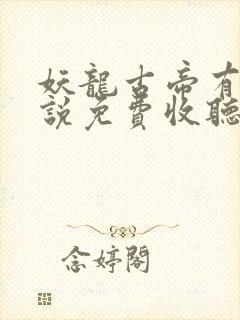 妖龍古帝有
說免費收聽
念婷閣